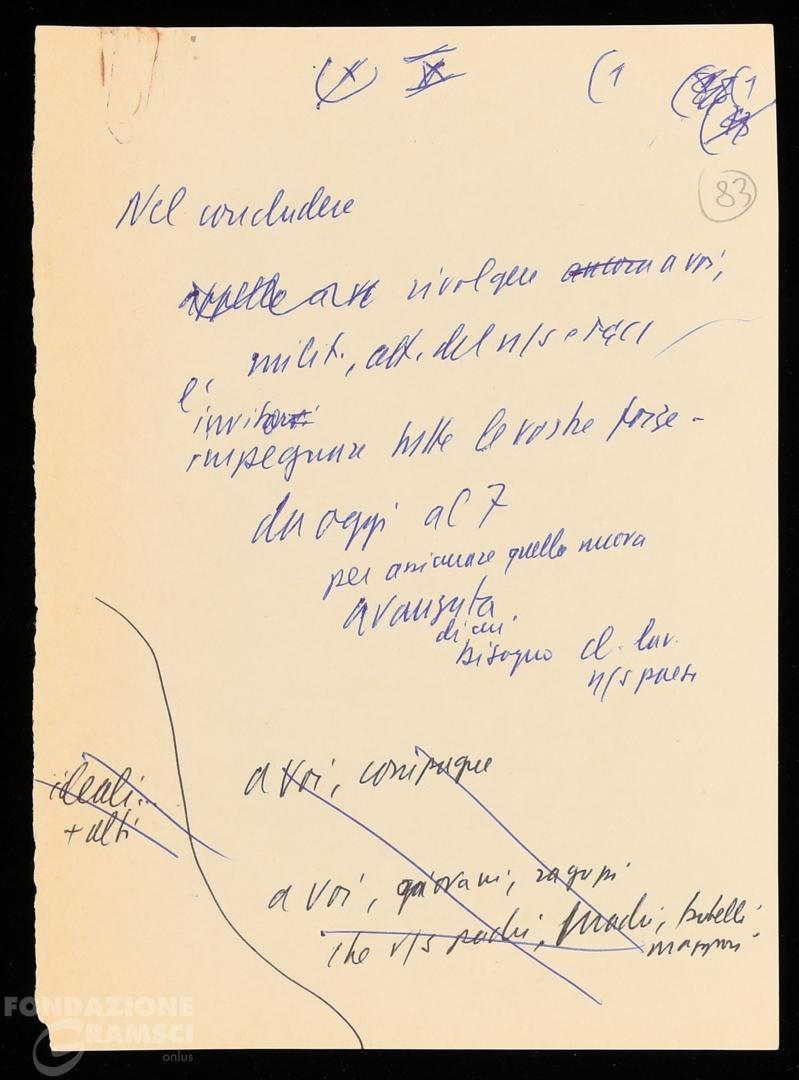 (1
(1
83
Nel concludere
appello rivolgere ancora a voi,
milit., att. del n/s e FGCI
l'
invitarvi
impegnare tutte le vostre forze -
da oggi al 7
per assicurare quella nuova
avanzata
di cui
bisogno cl. lav.
n/s paese
a voi, compagne
ideali...
+ alti
a voi, giovani, ragazzi
che n/s padri, madri, fratelli
maggiori
FONDAZIONE
GRAMSCI
onlus